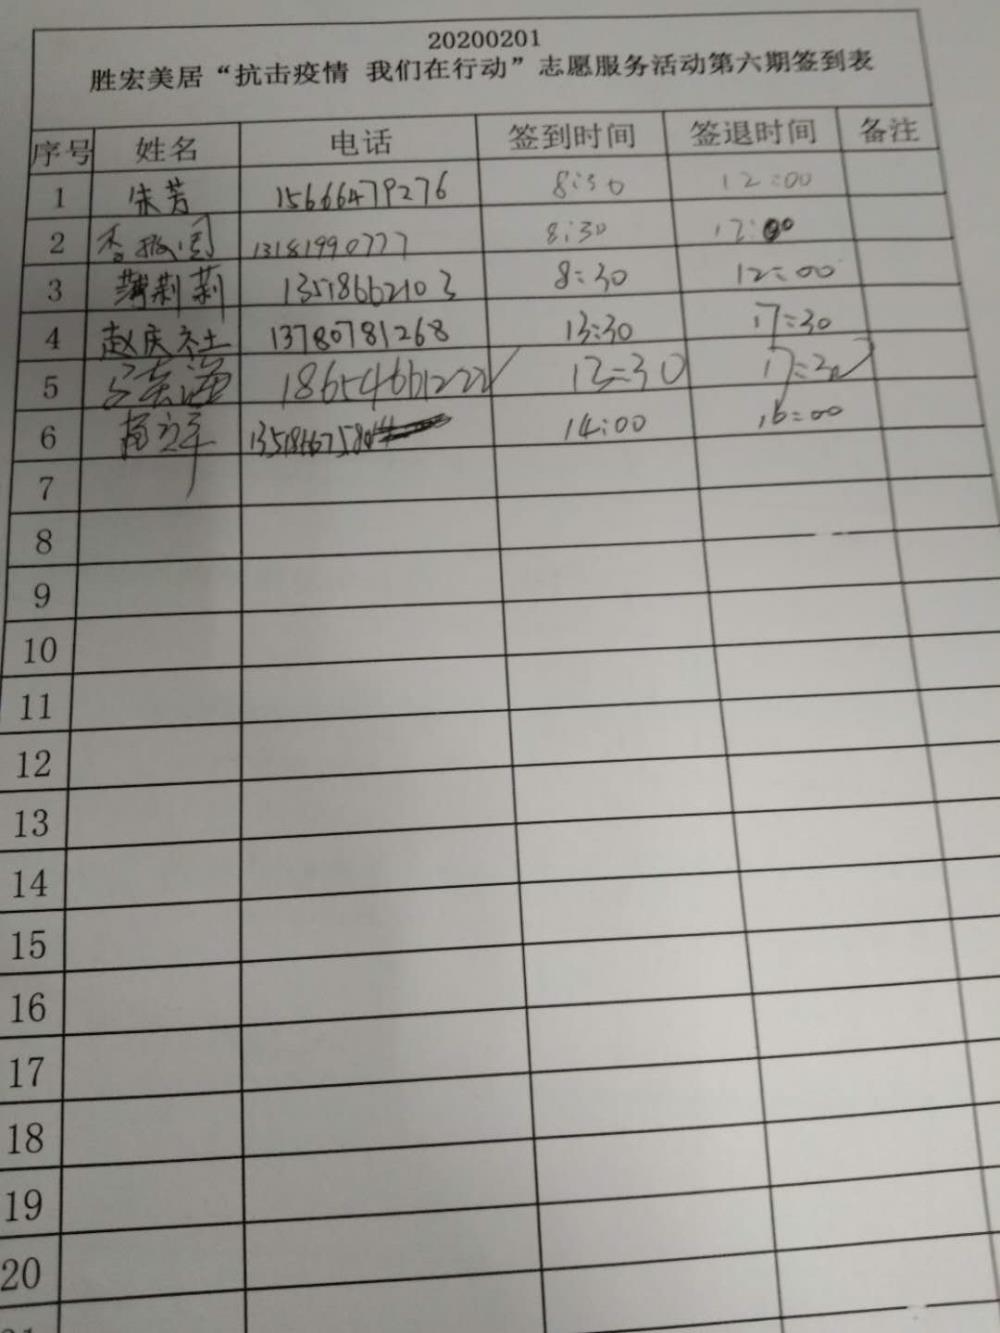 20200201
胜宏美居“抗击疫情 我们在行动”志愿服务活动第六期签到表
序号 姓名 电话 签到时间 签退时间 备注
1 朱芳 15666479276 8:30 12:00
2 13181990777 8:30 12:00
3 薄莉莉 13518662103 8:30 12:00
4 赵庆社 13780781268 13:30 17:30
5 18654661222 13:30 17:30
6 14:00 16:00
7
8
9
10
11
12
13
14
15
16
17
18
19
20